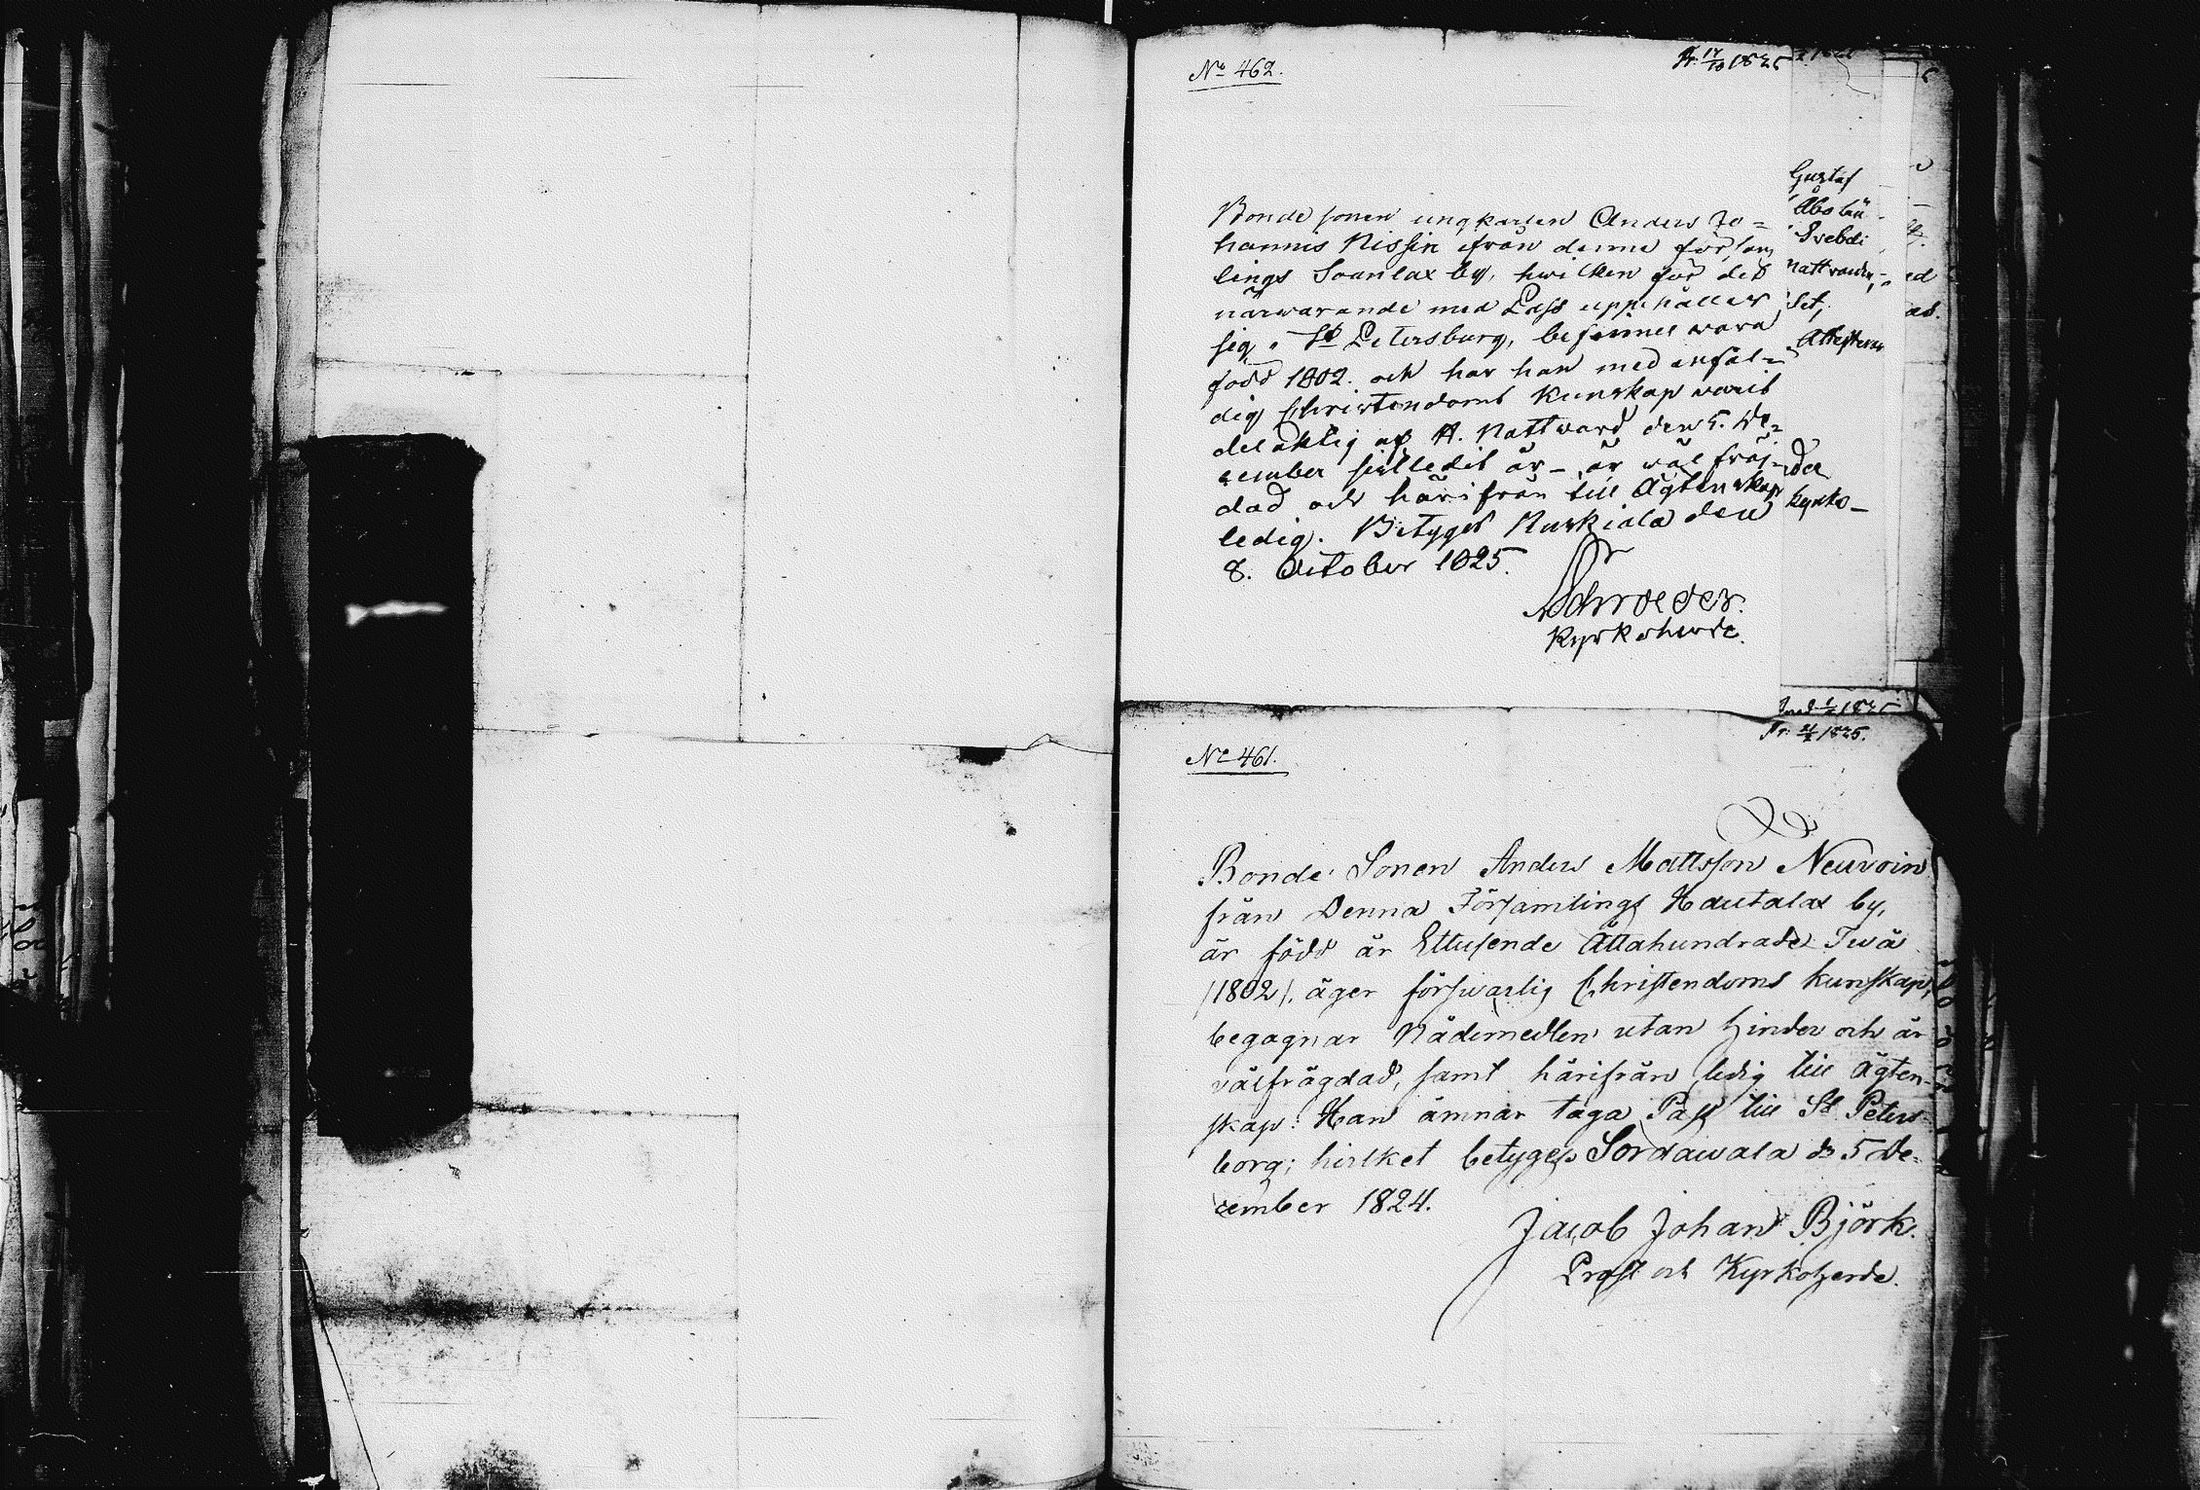 No 462.
Pr. 14/10 1825
Bonde sonen ungkarlen Anders Jo=
hannis Nissin ifrån denne försam
lings Soanlax by, hwilken för det
närwarande med Pass uppehåller
sig i St Petersburg, befinnes wara
född 1802. och har han med enfäl=
dig Christendoms Kunskap warit
delaktig af H. Nattward den 5. De=
cember sistledit år – är wäl fräj=
dad och härifrån till Ägtenskap
ledig. Betygar Ruskiala den
8. October 1825.
Schroeder.
Kyrkoherde.
Gustaf
Åbo
Svebeli
Nattvarden
Attesteras
Kyrko–
Pr. 1825.
No 461.
Bonde Sonen Anders Mattsson Neuvoin
från Denna Församlings Hautalax by,
är född år Ettusende Åttahundrade Twå
/1802/, äger förswarlig Christendoms kunskap,
begagnar Nådemedlen utan hinder och är
välfrägdad, samt härifrån ledig till Ägten-
skap: Han ämnar taga Pass till St Peters-
borg; hvilket betygas Sordawala d. 5 De=
cember 1824.
Jacob Johan Björk.
Prost och Kyrkoherde.